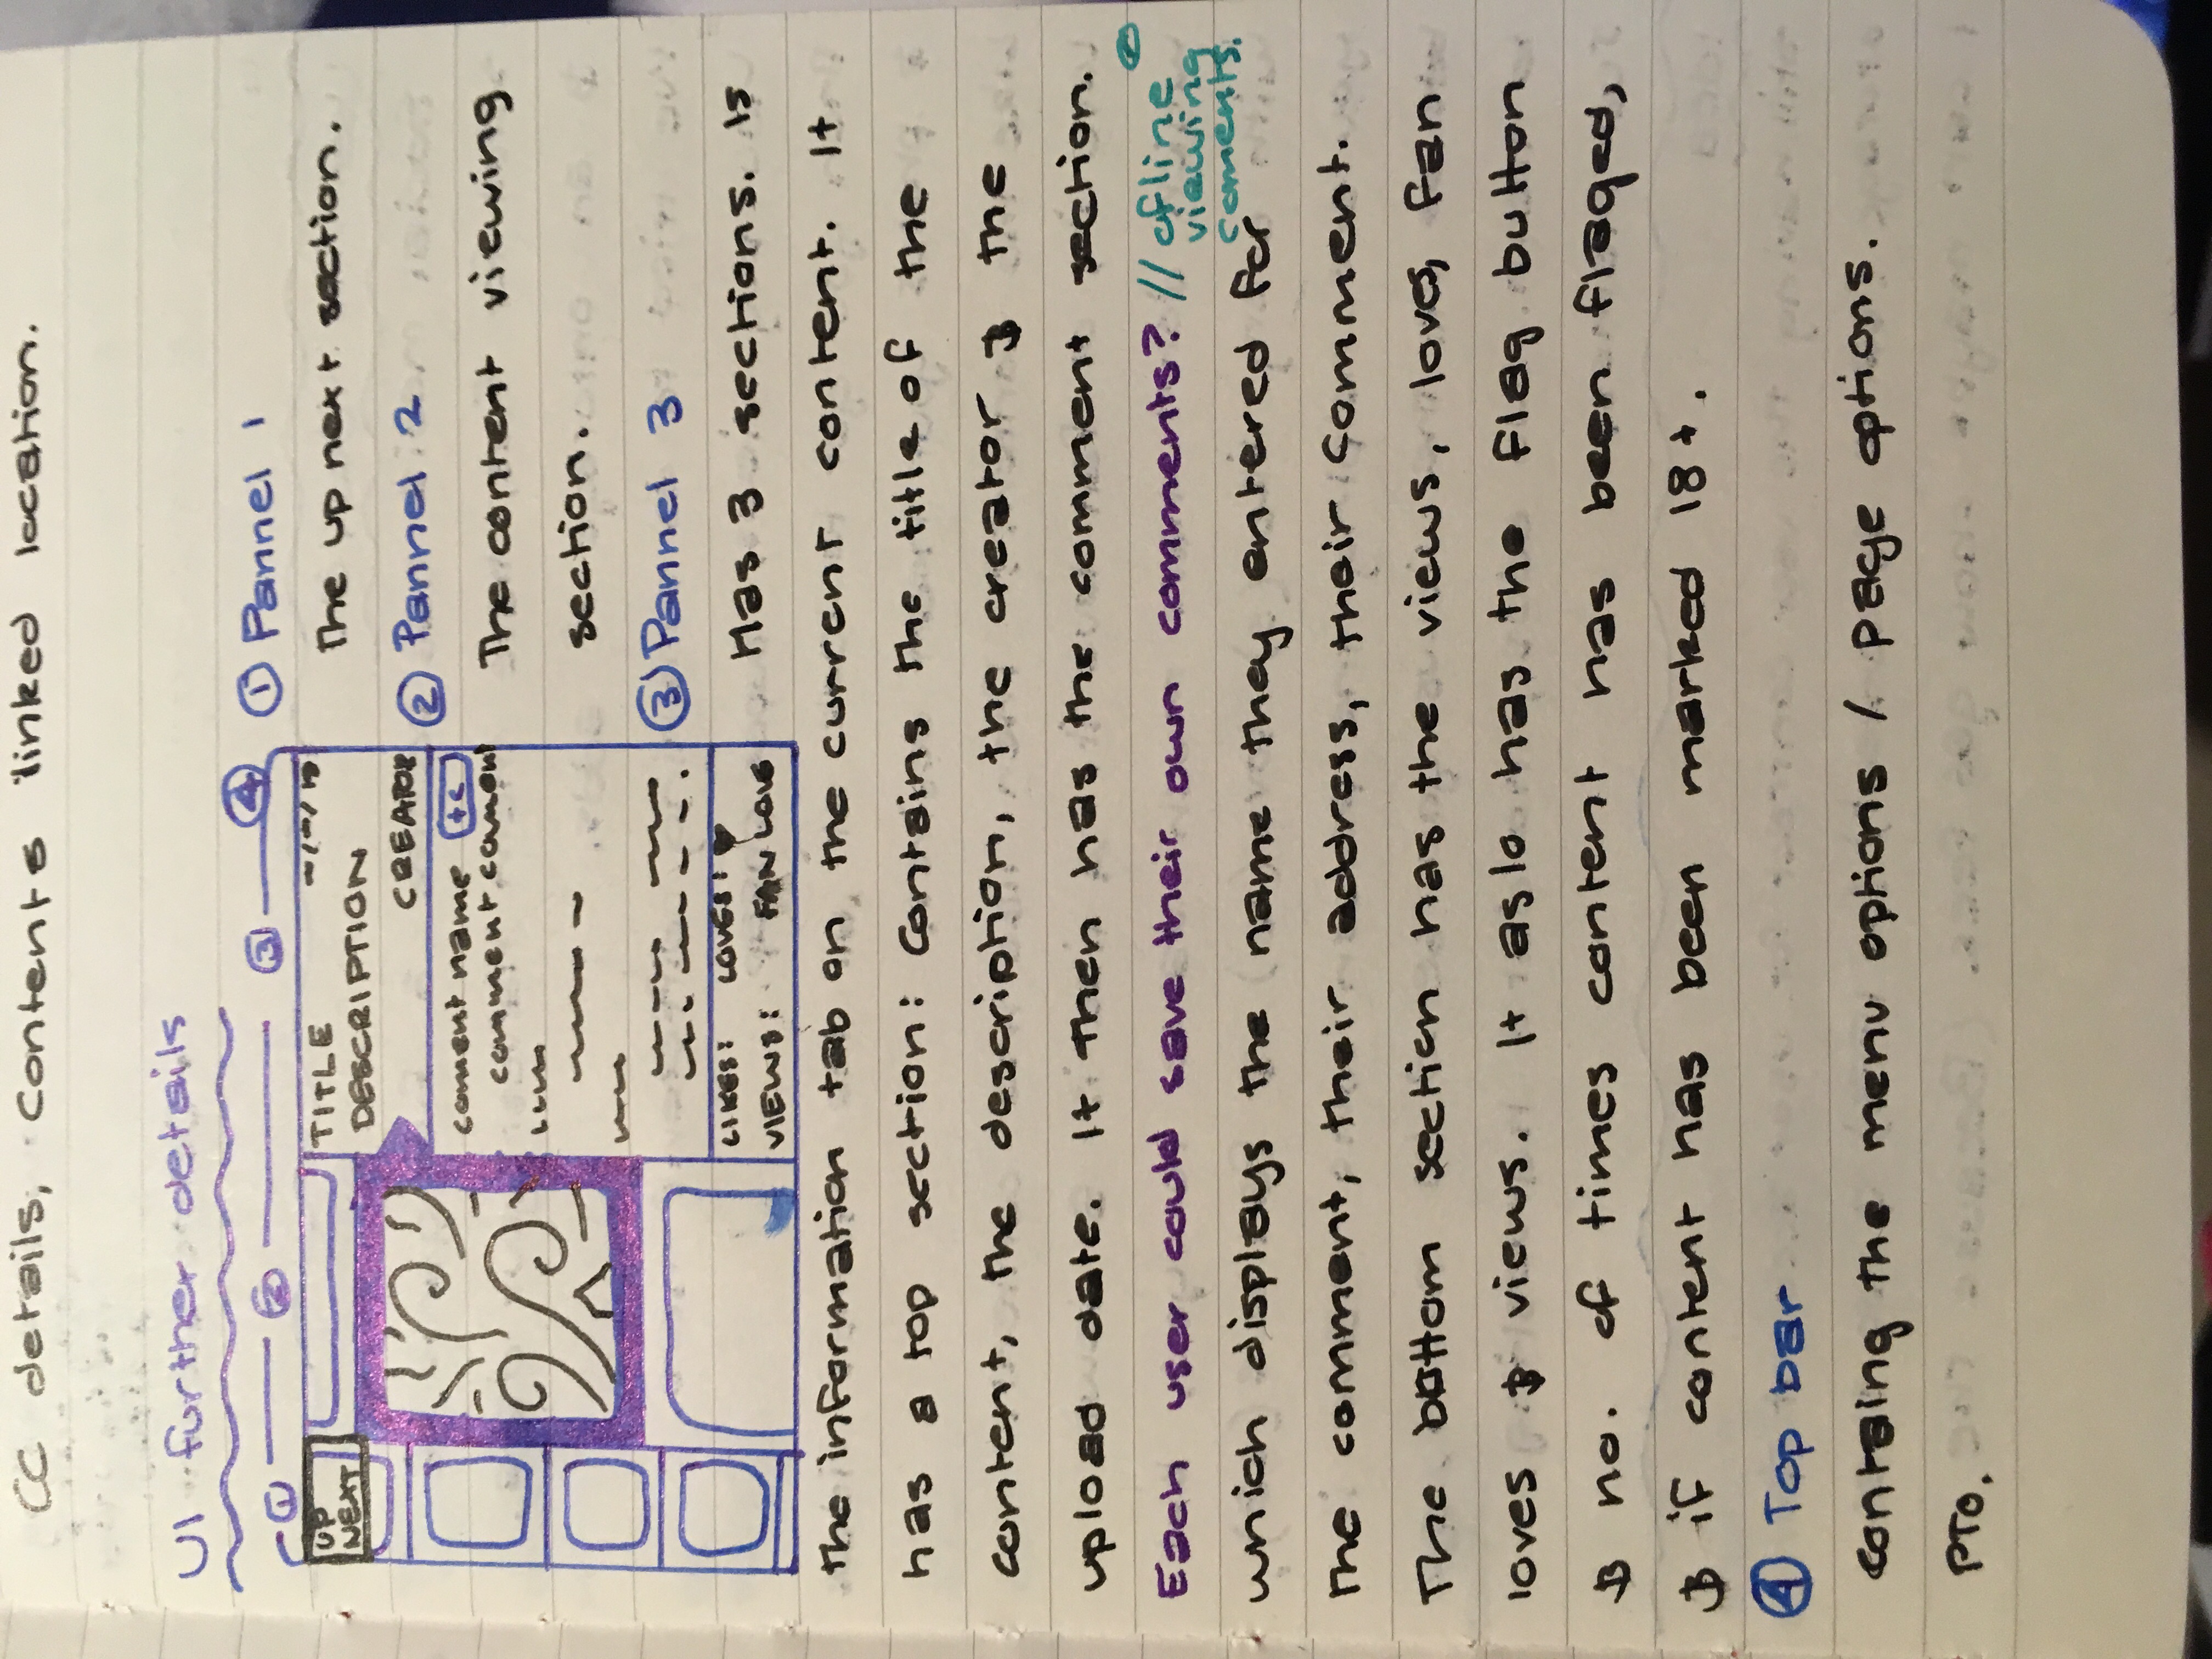 CC details, Contents linked location.
UI further details
1 2 3 4
UP
NEXT
TITLE
DESCRIPTION
CREATOR
coment name +c
comment coment
LIKES: LOVES: ♥
VIEWS: FAN LOVE
① Pannel 1
The up next section.
② Pannel 2
The content viewing
section.
③ Pannel 3
Has 3 sections. Is
the information tab on the current content. It
has a top section: Contains the title of the
content, the description, the creator & the
upload date. It then has the comment section.
Each user could save their own comments? // ofline
viewing
coments.
which displays the name they entered for
the comment, their address, their comment.
The bottom section has the views, loves, fan
loves & views. It aslo has the flag button
& no. of times content has been flaged,
& if content has been marked 18+.
④ Top bar
containg the menu options / page options.
PTO.